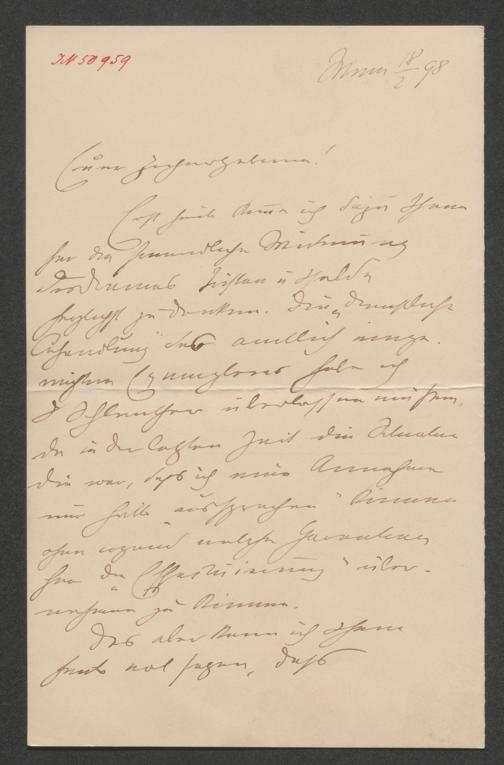 IN 50959
Wien 18/2 98
Euer Hochwohlgeboren!
Erst heute kann ich dazu Ihnen
für die freundliche Widmung
des Dramas
herzlichst zu danken. Die dramatische
Behandlung des amtlich einge-
reichten Exemplares habe ich
Schlenther überlassen müssen,
da in der letzten Zeit die
die war, daß ich eine Annahme
nur hätte aussprechen können
ohne irgend welche Garantien
für die über-
nehmen zu können.
Das aber kann ich Ihnen
heute wol sagen, daß